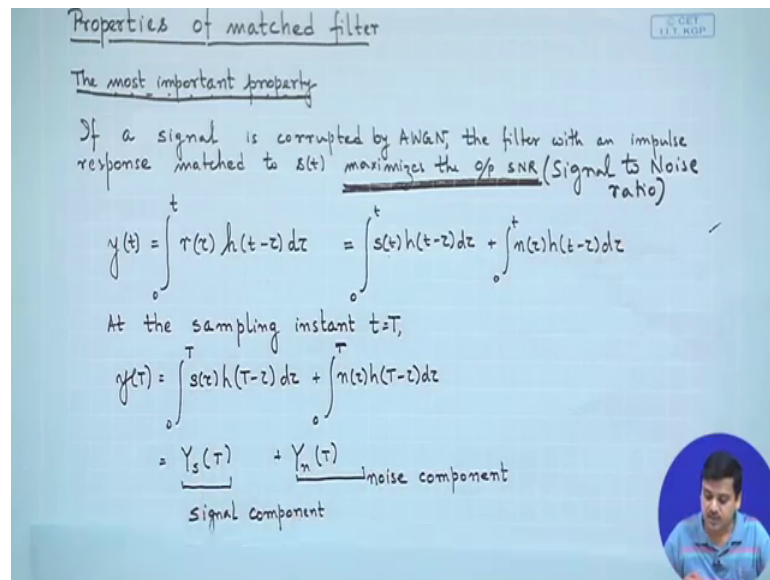 Properties of matched filter
© CET
I.I.T. KGP
The most important property
If a signal is corrupted by AWGN, the filter with an impulse
response matched to s(t) maximizes the o/p SNR (Signal to Noise
ratio)
y(t) = ∫₀ᵗ r(τ) h(t-τ) dτ = ∫₀ᵗ s(t) h(t-τ) dτ + ∫₀ᵗ n(τ) h(t-τ) dτ
At the sampling instant t=T,
y(T) = ∫₀ᵀ s(τ) h(T-τ) dτ + ∫₀ᵀ n(τ) h(T-τ) dτ
= Yₛ(T) + Yₙ(T)
noise component
signal component